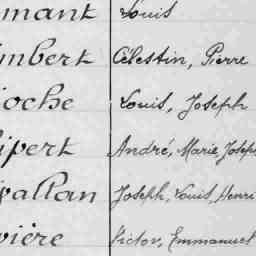 mant Louis
mbert Célestin, Pierre
oche Louis, Joseph
ipert André, Marie, Joseph
vallan Joseph, Louis, Henri
vière Victor, Emmanuel